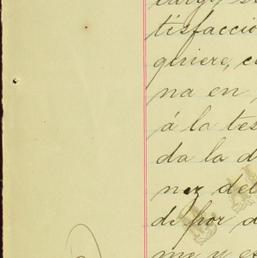 tisfacció
quiere, c
na en
á la tes
da la d
nez del
di por d
me y es